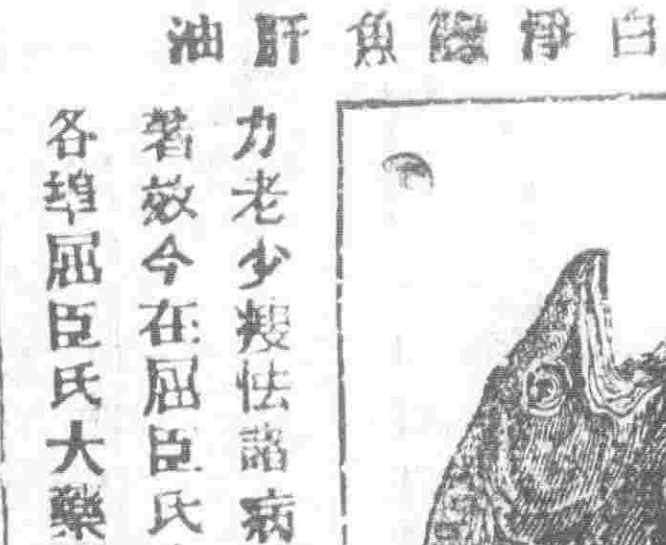 白淨鰵魚肝油
力老少瘦怯諸病
著效今在屈臣氏
各埠屈臣氏大藥